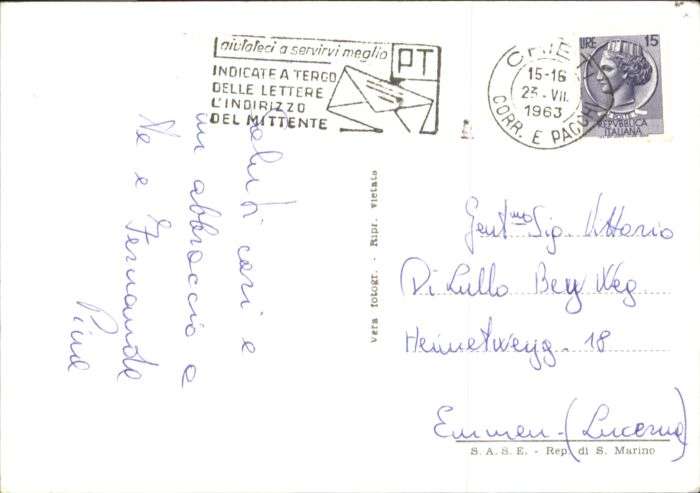 aiutateci a servirvi meglio
PT
INDICATE A TERGO
DELLE LETTERE
L'INDIRIZZO
DEL MITTENTE
CHIETI
15-16
23-VII.
1963
CORR. E PACCHI
LIRE 15
REPVBBLICA
ITALIANA
Saluti cari e
un abbraccio a
Te e Fernanda
Vera fotogr. - Ripr. vietata
Gent.mo Sig. Vittorio
Di Lullo Bey Weg.
Heimetweyg. 18
Emmen - (Lucerna)
S. A. S. E. - Rep. di S. Marino